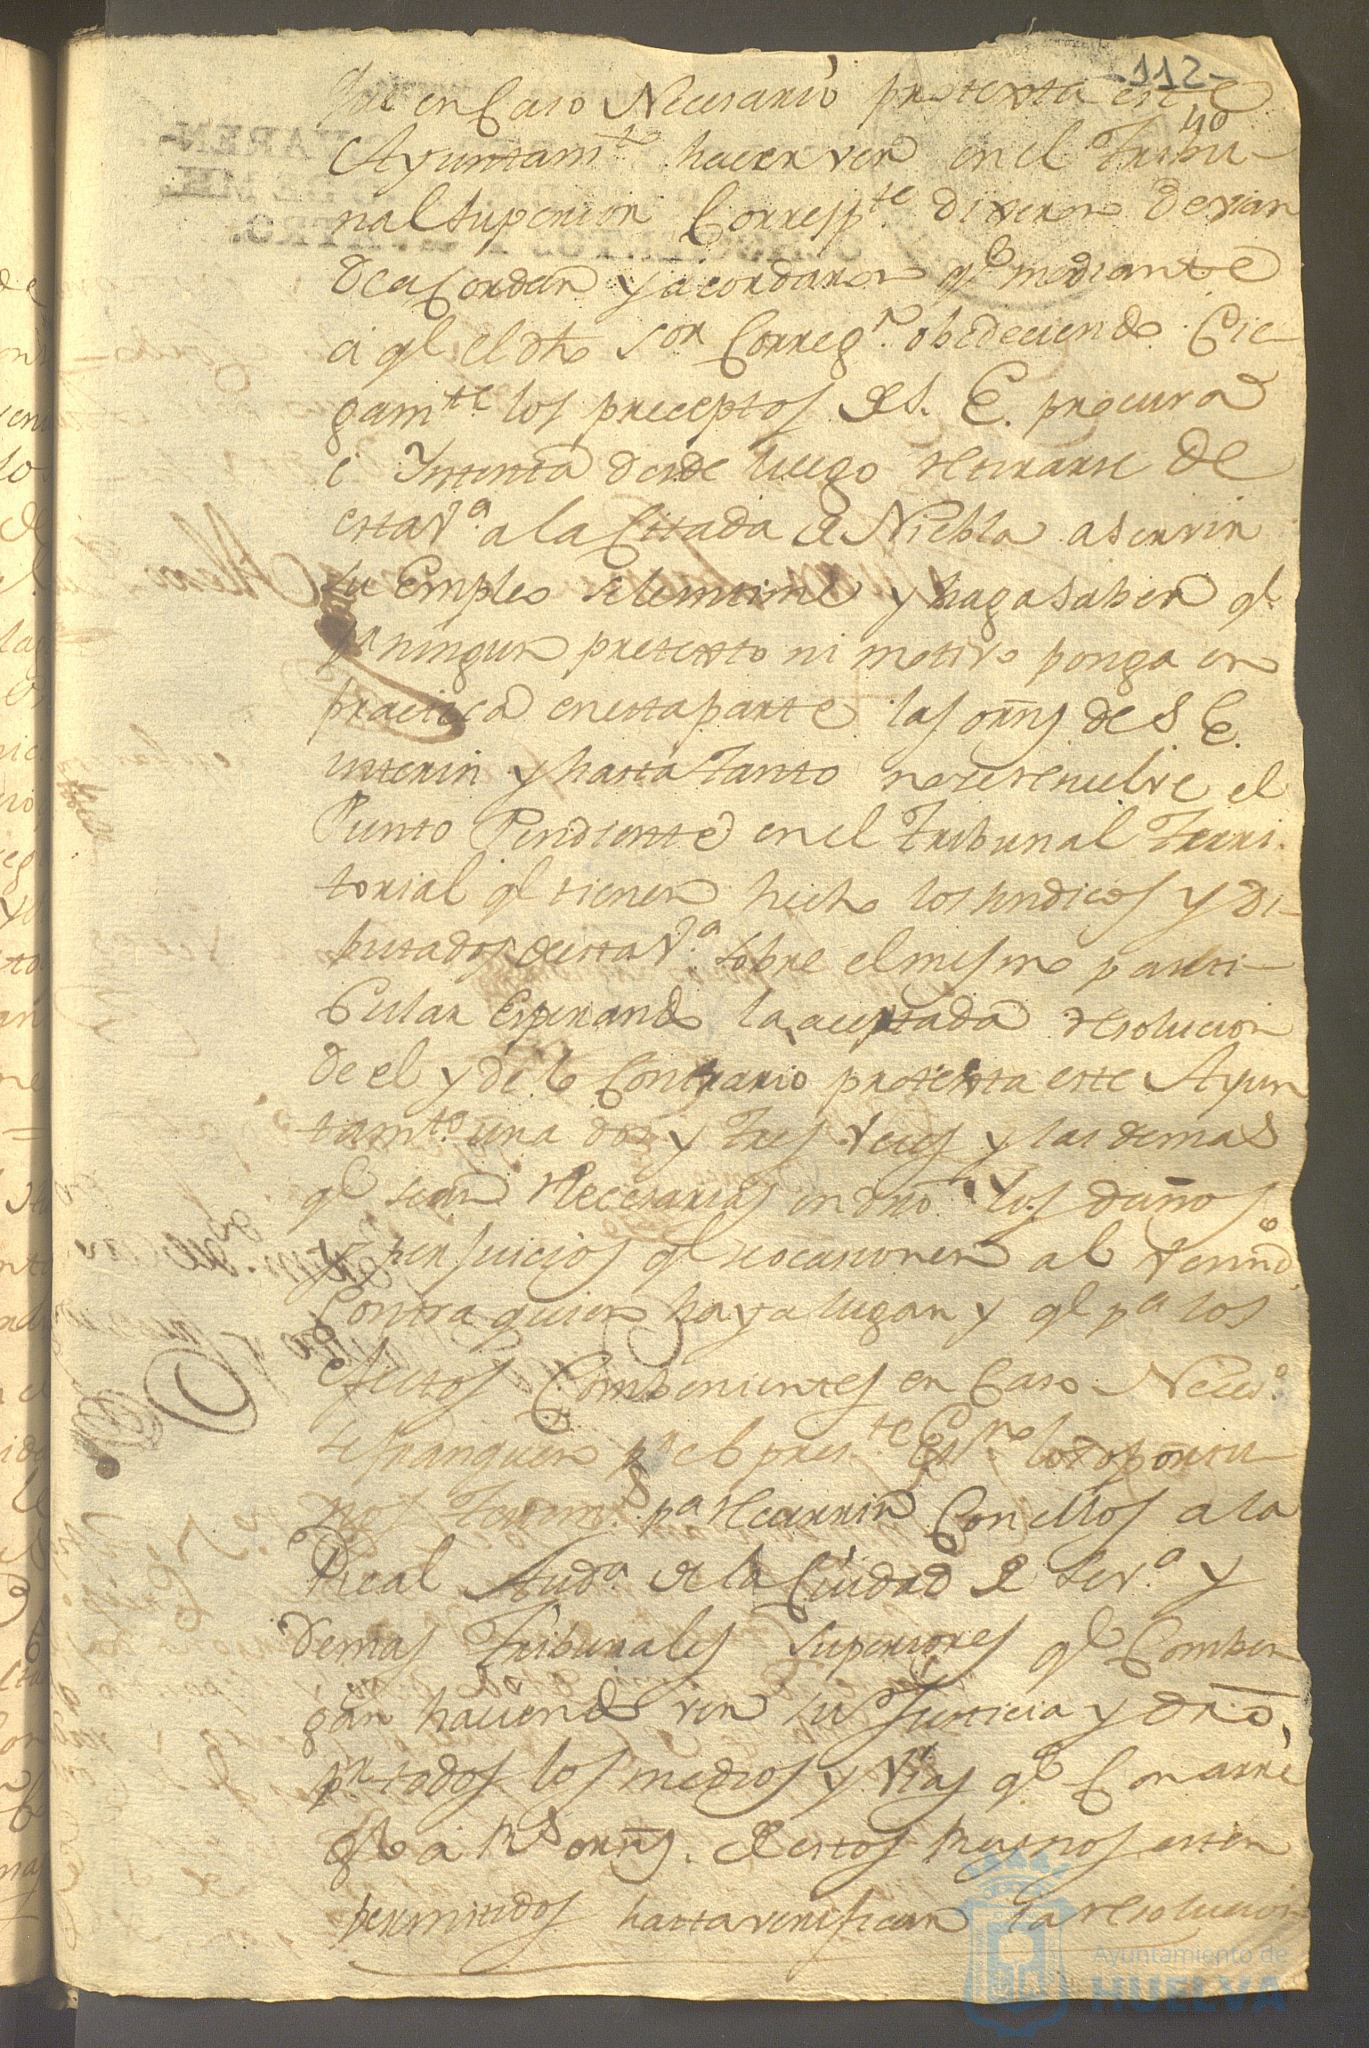 -112-
40
que en Caso Necesario protexta este
Ayuntam.to hacer ver en el Tribu-
nal Superior Corresp.te dixeron devian
de acordar y acordaron q.e mediante
a q.e el dho S.or Correg.r obedeciendo Cie-
gam.te los preceptos de S. E. procura
e Intenta desde luego retirarse de
esta V.a a la Citada de Niebla a servir
su Empleo se le intime y haga saber q.e
p.r ningun pretexto ni motivo ponga en
practica en esta parte las orns de S. E.
interin y hasta tanto no se resuelve el
Punto Pendiente en el Tribunal Terri-
torial q.e tienen hecho los sindicos y di-
putados de esta V.a sobre el mismo parti-
cular Esperando la aceptada resolucion
de el y de lo Contrario protexta este Ayun
tam.to una dos y tres veces y las demas
q.e sean Necesarias en dro los daños
y perjuicios q.e se ocasionen al Vecind.o
Contra quien haya lugar y q.e p.a los
efectos Combenientes en Caso Neces.o
se franqueen p.r el pres.te Es.no los oportu-
nos Testim.s p.a recurrir Con ellos a la
Real Aud.a de la Ciudad de Sev.a y
demas Tribunales Superiores q.e Comben
gan haciendo ver su Justicia y dro,
p.r todos los medios y Vias q.e Con arre
glo a R.s orns. de estos Reynos esten
permitidos hasta verificar la resolucion
Ayuntamiento de
HUELVA